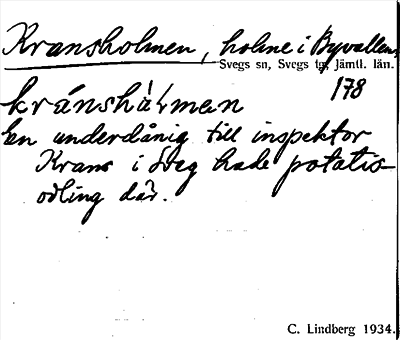 Kransholmen, holme i Byvallen,
Svegs sn, Svegs tg, Jämtl. län.
178
kránshàrmen
En underdånig till inspektor
Krans i Sveg hade potatis-
odling där.
C. Lindberg 1934.